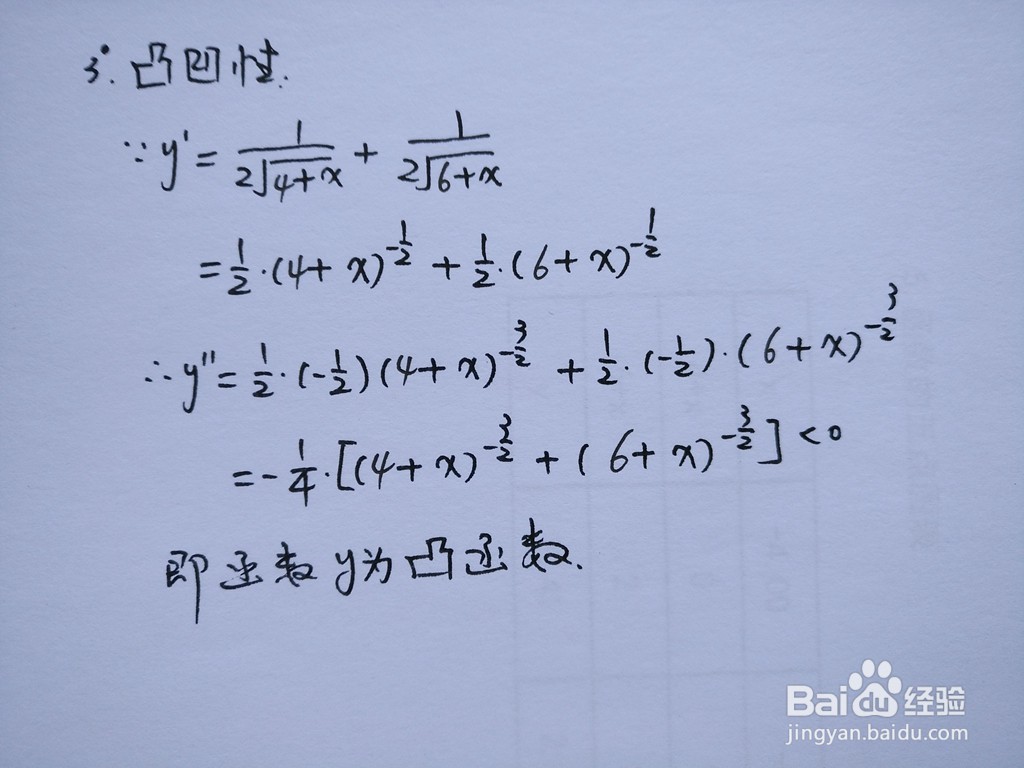 3°. 凸凹性.
∵ y' = 1/(2√(4+x)) + 1/(2√(6+x))
= 1/2·(4+x)^(-1/2) + 1/2·(6+x)^(-1/2)
∴ y'' = 1/2·(-1/2)(4+x)^(-3/2) + 1/2·(-1/2)·(6+x)^(-3/2)
= -1/4·[(4+x)^(-3/2) + (6+x)^(-3/2)] <0
即函数y为凸函数.
Baidu经验
jingyan.baidu.com